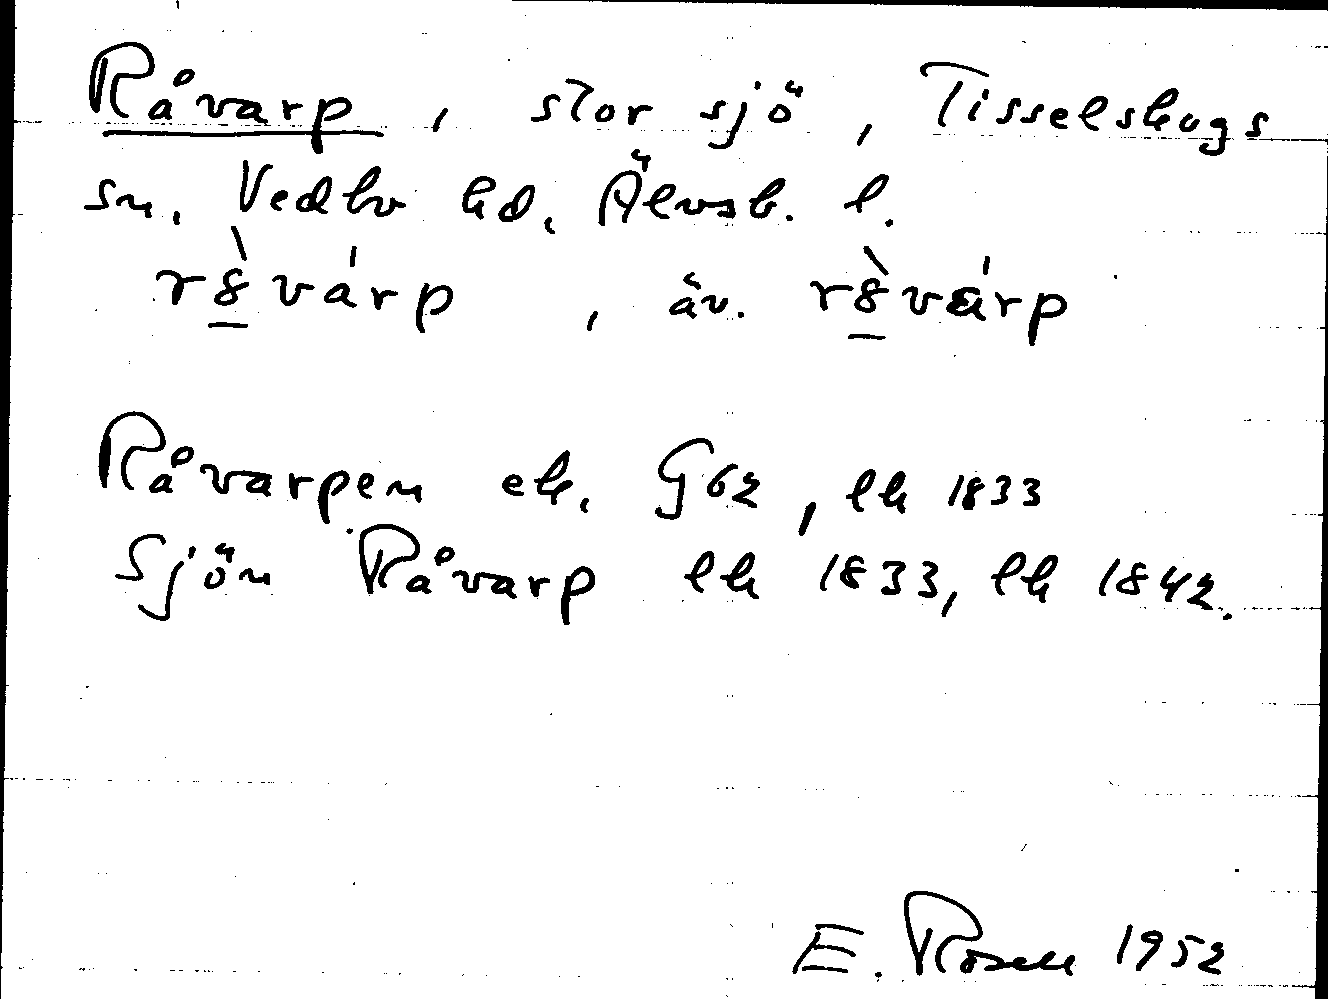 Råvarp, stor sjö, Tisselskogs
sn, Vedbo hd, Älvsb. l.
r8̲̀várp, äv. r8̲̀várp
Råvarpen ek. G62, lk 1833
Sjön Råvarp lk 1833, lk 1842.
E. Rosell 1952